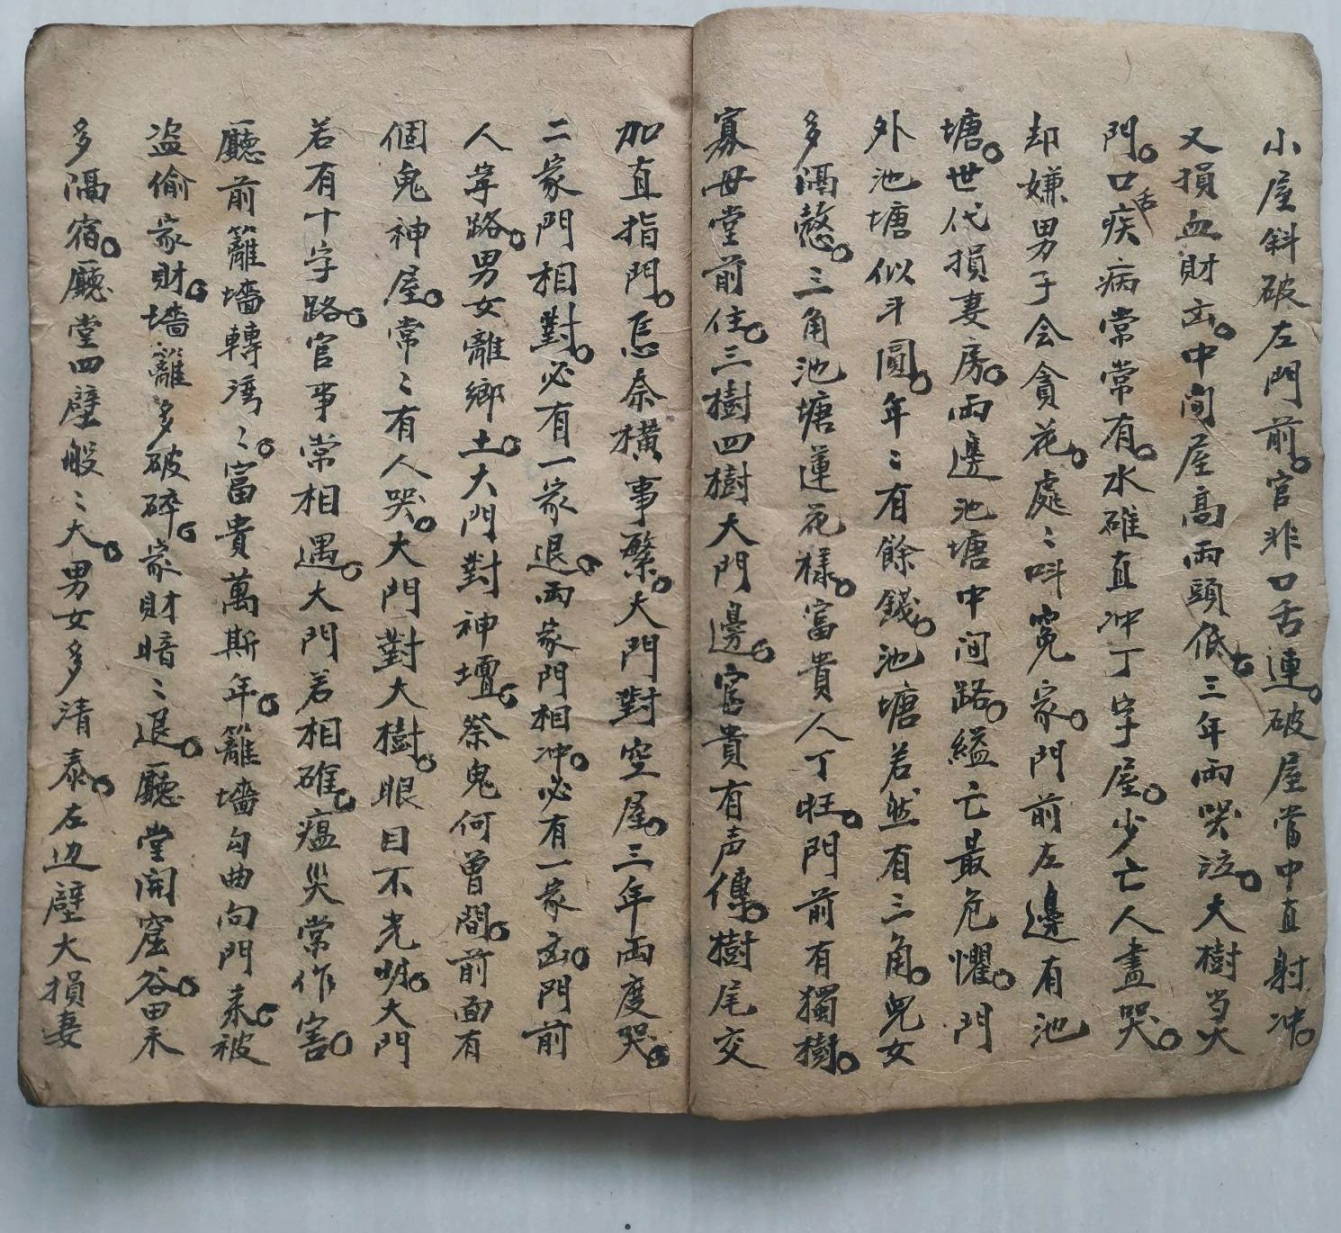 小屋斜破左門前。官非口舌連。破屋當中直射冲。
又損血財亡。中间屋高兩頭低。三年兩哭泣。大樹当大
門。口舌疾病常常有。水碓直冲丁字屋。少亡人盡哭。
却嫌男子会貪花。處〻叫寃家。門前左邊有池
塘。世代損妻房。兩邊池塘中间路。縊亡最危懼。門
外池塘似斗圓。年〻有餘錢。池塘若然有三角。兒女
多隔。三角池塘蓮花樣。富貴人丁旺。門前有獨樹。
寡母堂前住。三樹四樹大門邊。富貴有声傳。樹尾交
加直指門。忌奈橫事繁。大門對空屋。三年兩度哭。
二家門相對。必有一家退。兩家門相冲。必有一家亡。門前
人字路。男女離鄉土。大門對神壇。祭鬼何曾間。前面有
個鬼神屋。常〻有人哭。大門對大樹。眼目不光明。大門
若有十字路。官事常相遇。大門若相碓。瘟災常作害。
廳前籬墻轉湾〻。富貴萬斯年。籬墻勾曲向門來。被
盜偷家財。墻籬多破碎。家財暗〻退。廳堂開窟谷田禾
多隔宿。廳堂四壁般〻大。男女多清泰。左边壁大損妻